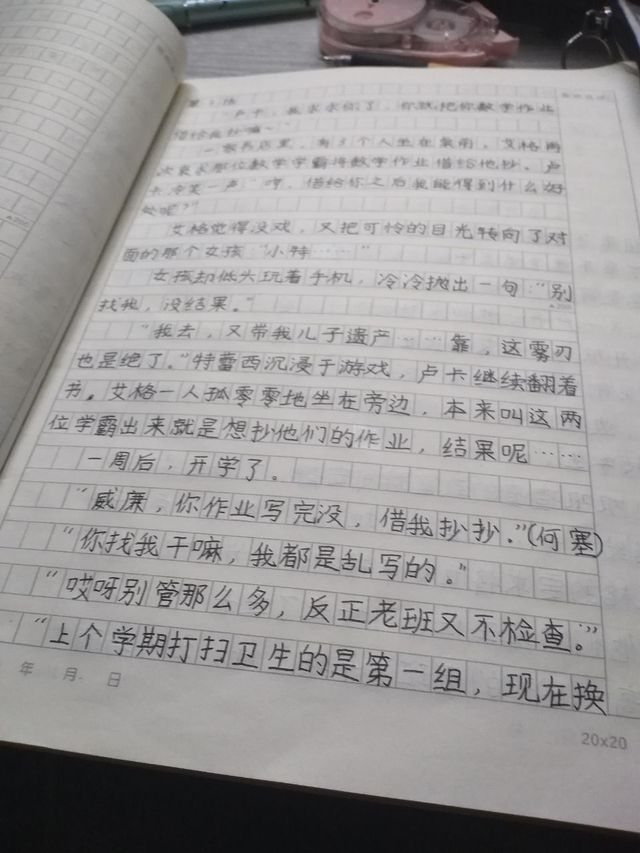 第1话
"卢卡，我求求你了，你就把你数学作业
借给我抄嘛~"
一家书店里，有3个人坐在桌前，艾格两
次哀求那位数学学霸将数学作业借给他抄。卢
卡冷笑一声："哼，借给你之后我能得到什么好
处呢？"
艾格觉得没戏，又把可怜的目光转向了对
面的那个女孩："小特……"
女孩却低头玩着手机，冷冷抛出一句："别
找我，没结果。"
"我去，又带我儿子遗产……靠，这雾刃
也是绝了。"特蕾西沉浸于游戏，卢卡继续翻着
书。艾格一人孤零零地坐在旁边，本来叫这两
位学霸出来就是想抄他们的作业，结果呢……
一周后，开学了。
"威廉，你作业写完没，借我抄抄。"(何塞)
"你找我干嘛，我都是乱写的。"
"哎呀别管那么多，反正老班又不检查。"
"上个学期打扫卫生的是第一组，现在换
年 月 日
20x20